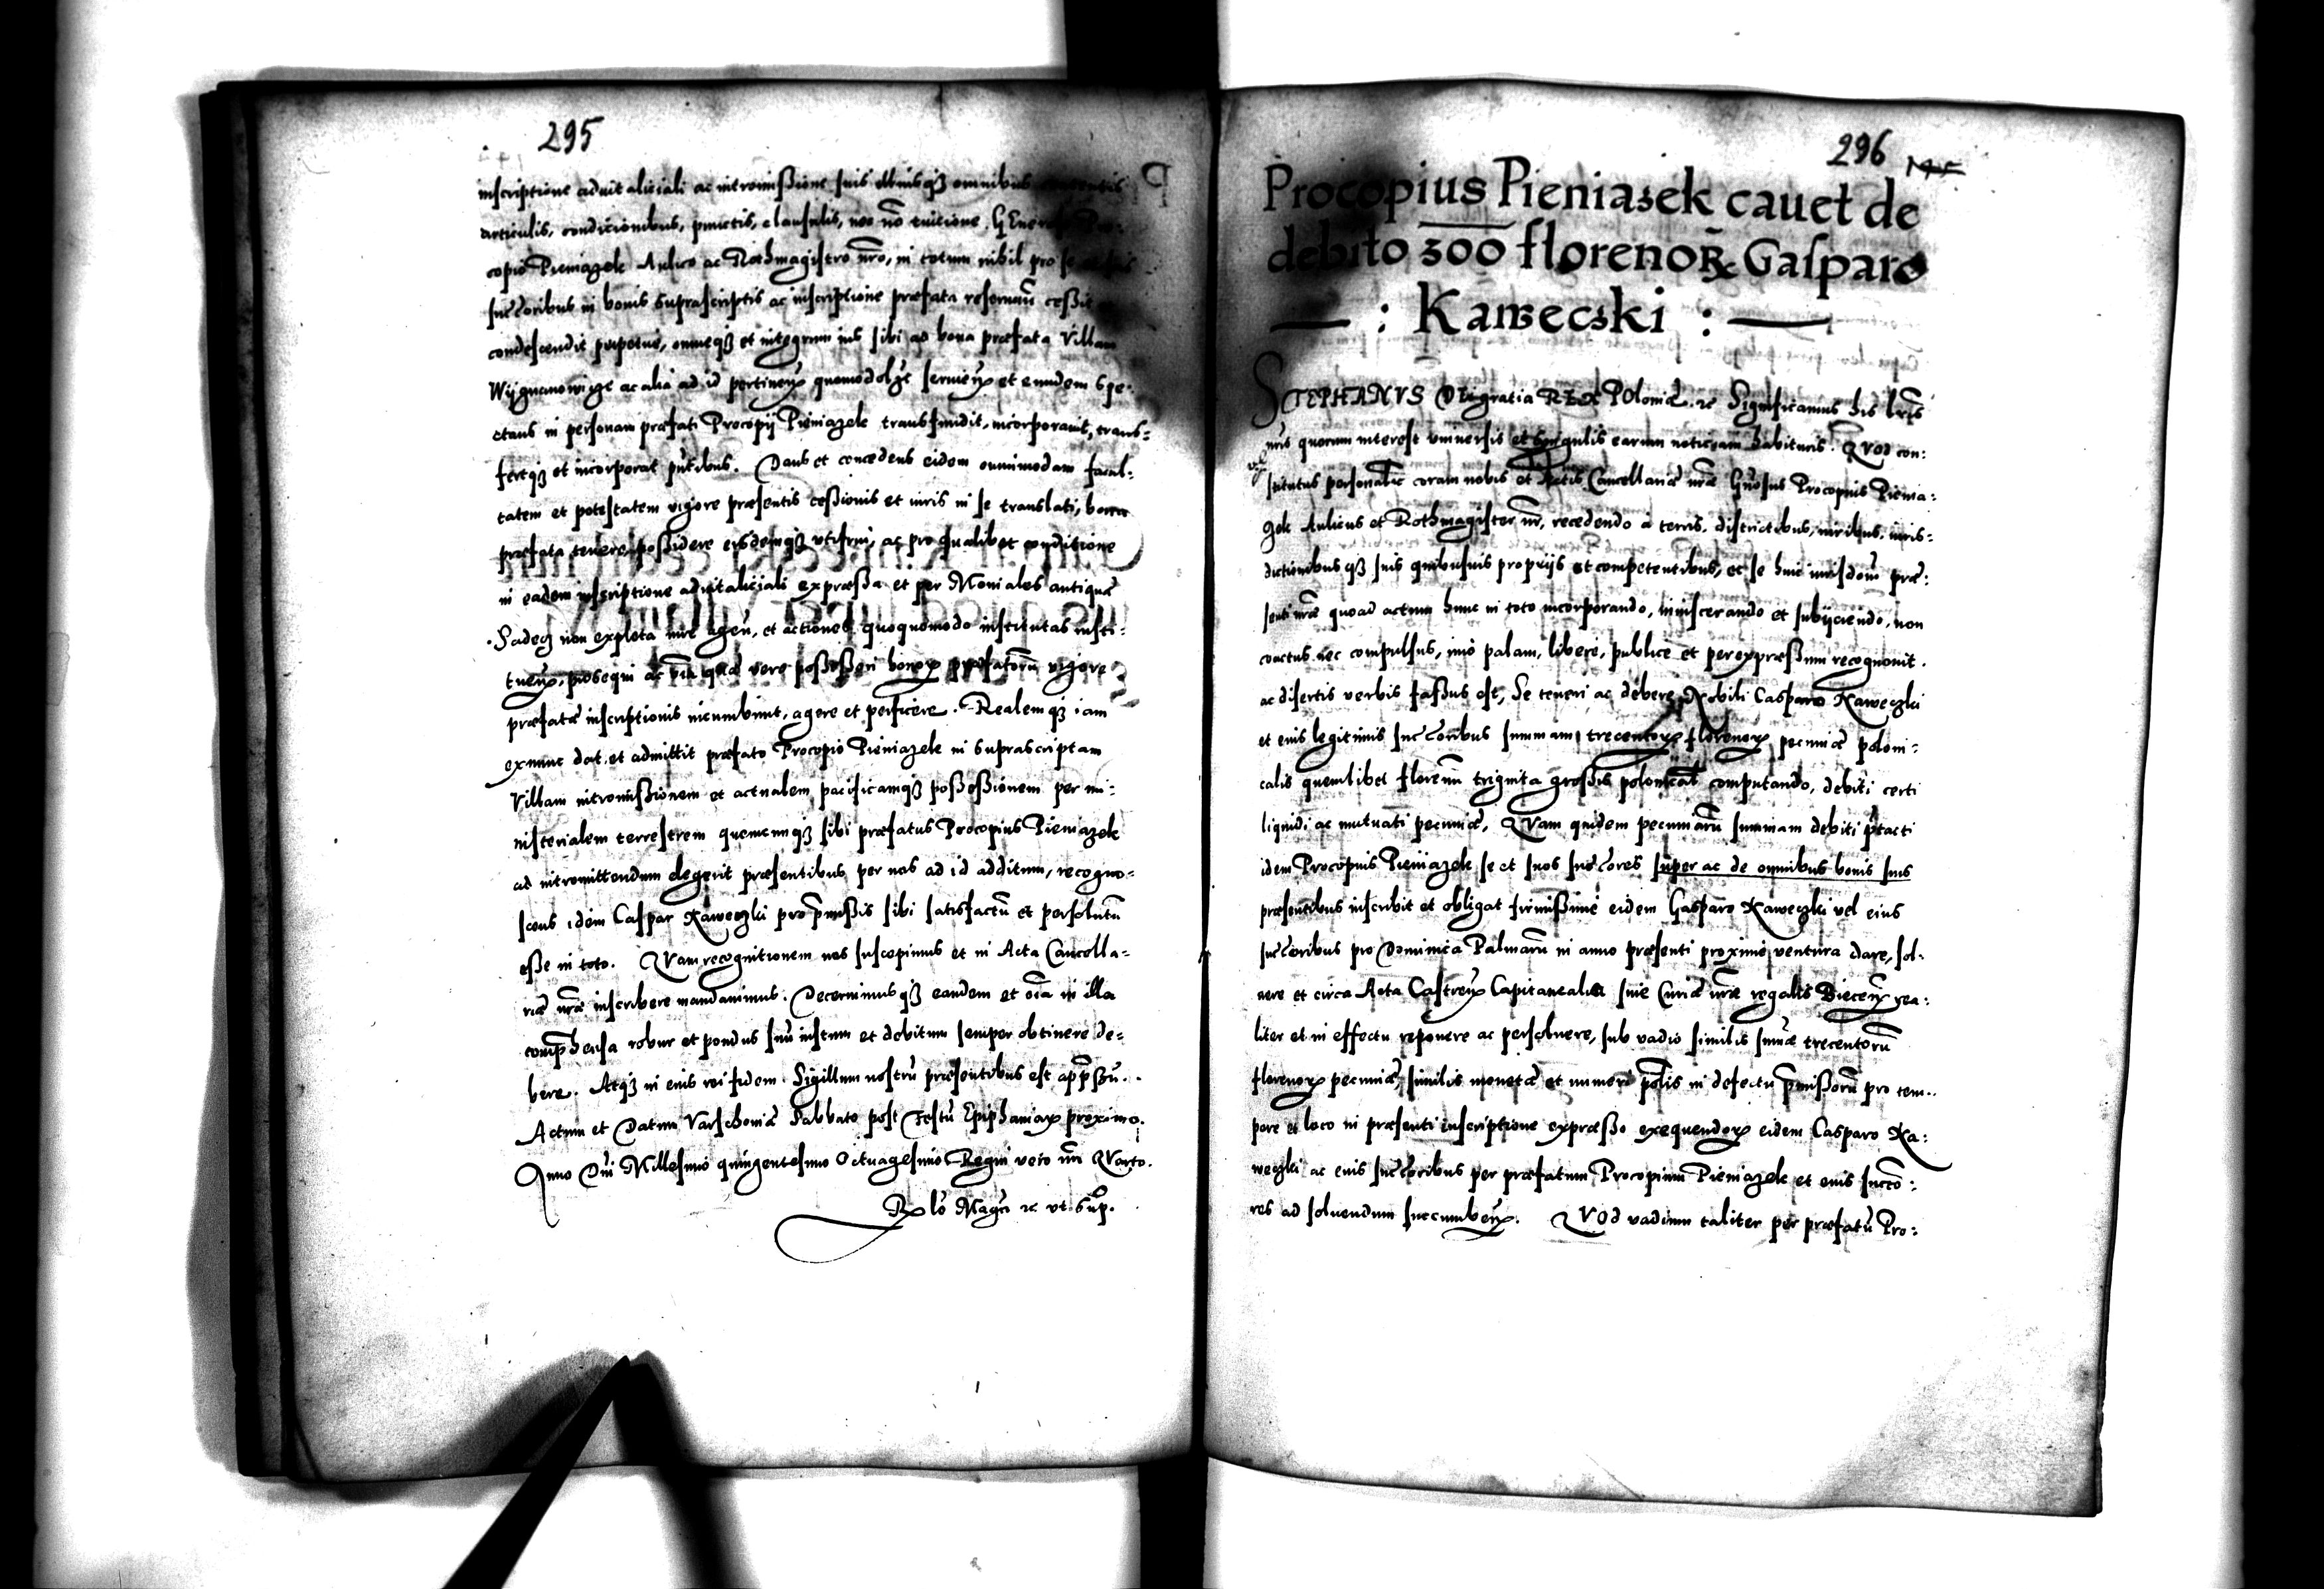 295
inscriptione aduitaliciali ac intromißione suis aliisq3 omnibus
articulis, conditionibus, punctis, clausulis, nec nõ euictione. GEneroso Pro-
copio Pieniazek Aulico ac Rothmagistro nr̃o, in totum nihil pro se
succ̃oribus in bonis suprascriptis ac inscriptione præfata reseruañ ceßit
condescendit perpetue, omneq3 et integrum ius sibi ad bona præfata Villam
ac alia ad id pertineñ quomodolz seruieñ et eundem spe-
ctans in personam præfati Procopij Pieniazek transfundit, incorporauit, trans-
fertq3 et incorporat pñtibus. Dans et concedens eidem omnimodam facul-
tatem et potestatem vigore præsentis ceßionis et iuris in se translati, bona
præfata tenere, poßidere eisdemq3 vtifrui, ac pro qualibet conditione
in eadem inscriptione aduitaliciali expræßa et per Moniales antiquæ
Sadecz non expleta iure ageñ, et actiones quoquomodo institutas insti-
tueñ, prosequi ac oĩa quæ vere poßeßori bonorum præfatorũ vigore
præfatæ inscriptionis incumbunt, agere et perficere. Realemq3 iam
exnunc dat, et admittit præfato Procopio Pieniazek in suprascriptam
Villam intromißionem et actualem pacificamq3 poßeßionem per mi-
nisterialem terrestrem quemcunq3 sibi præfatus Procopius Pieniazek
ad intromittendum elegerit præsentibus per nos ad id additum, recogno-
scens idem Caspar Kaweczki pro p̃mißis sibi satisfactũ et persolutũ
eße in toto. QVam recognitionem nos suscepimus et in Acta Cancella-
riæ nr̃æ inscribere mandauimus. Decernimusq3 eandem et oĩa in illa
comp̃hensa robur et pondus suũ iustum et debitum semper obtinere de-
bere. Atq3 in eius rei fidem Sigillum nostrũ præsentibus est app̃ßũ.
Actum et Datum Varschouiæ Sabbato post Festũ Epiphaniarum proximo.
Anno Dñi Millesimo quingentesimo Octuagesimo Regni vero nr̃i QVarto.
Rel̃o Magci rc vt sup̃.
296
Procopius Pieniazek cauet de
debito 300 florenoꝝ Gasparo
: Kaweczki :
STEPHANVS DEi gratia REX POloniæ. rc Significamus his lr̃is
nr̃is quorum interest vniuersis et singulis earum noticiam habituris. QVod con:
stitutus personalr̃ coram nobis et Actis Cancellariæ nr̃æ Gñosus Procopius Pienia:
zek Aulicus et Rothmagister nr̃, recedendo a terris, districtibus, iuribus, iuris:
dictionibusq3 suis quibusuis proprijs et competentibus, et se huic iurisdoñi præ:
senti nr̃æ quoad actum hunc in toto incorporando, inuiscerando et subijciendo, non
coactus nec compulsus, imò palam, libere, publicè et perexpræßum recognouit.
ac disertis verbis faßus est, Se teneri ac debere Nobili Casparo Kaweczki
et eius legitimis succ̃oribus summam trecentorum florenorum pecuniæ poloni:
calis quemlibet florenũ triginta großis polonicał computando, debiti certi
liquidi ac mutuati pecuniæ, QVam quidem pecuniarũ summam debiti p̃tacti
idem Procopius Pieniazek se et suos succ̃ores super ac de omnibus bonis suis
præsentibus inscribit et obligat firmißime eidem Gasparo Kaweczki vel eius
succ̃oribus pro Dominica Palmarũ in anno præsenti proximè ventura dare, sol-
uere et circa Acta Castreñ Capitanealia siue Curiæ nr̃æ regalis Bieceñ rea:
liter et in effectu reponere ac persoluere, sub vadio similis sum̃æ trecentorũ
florenorum pecuniæ, similis monetæ et numeri pol̃is in defectu p̃mißorũ pro tem..
pore et loco in præsenti inscriptione expræßo exequendorum eidem Casparo Ka:
weczki ac eius succ̃oribus per præfatum Procopium Pieniazek et eius succõ:
res ad soluendum succumbeñ. QVod vadium taliter per præfatũ Pro: